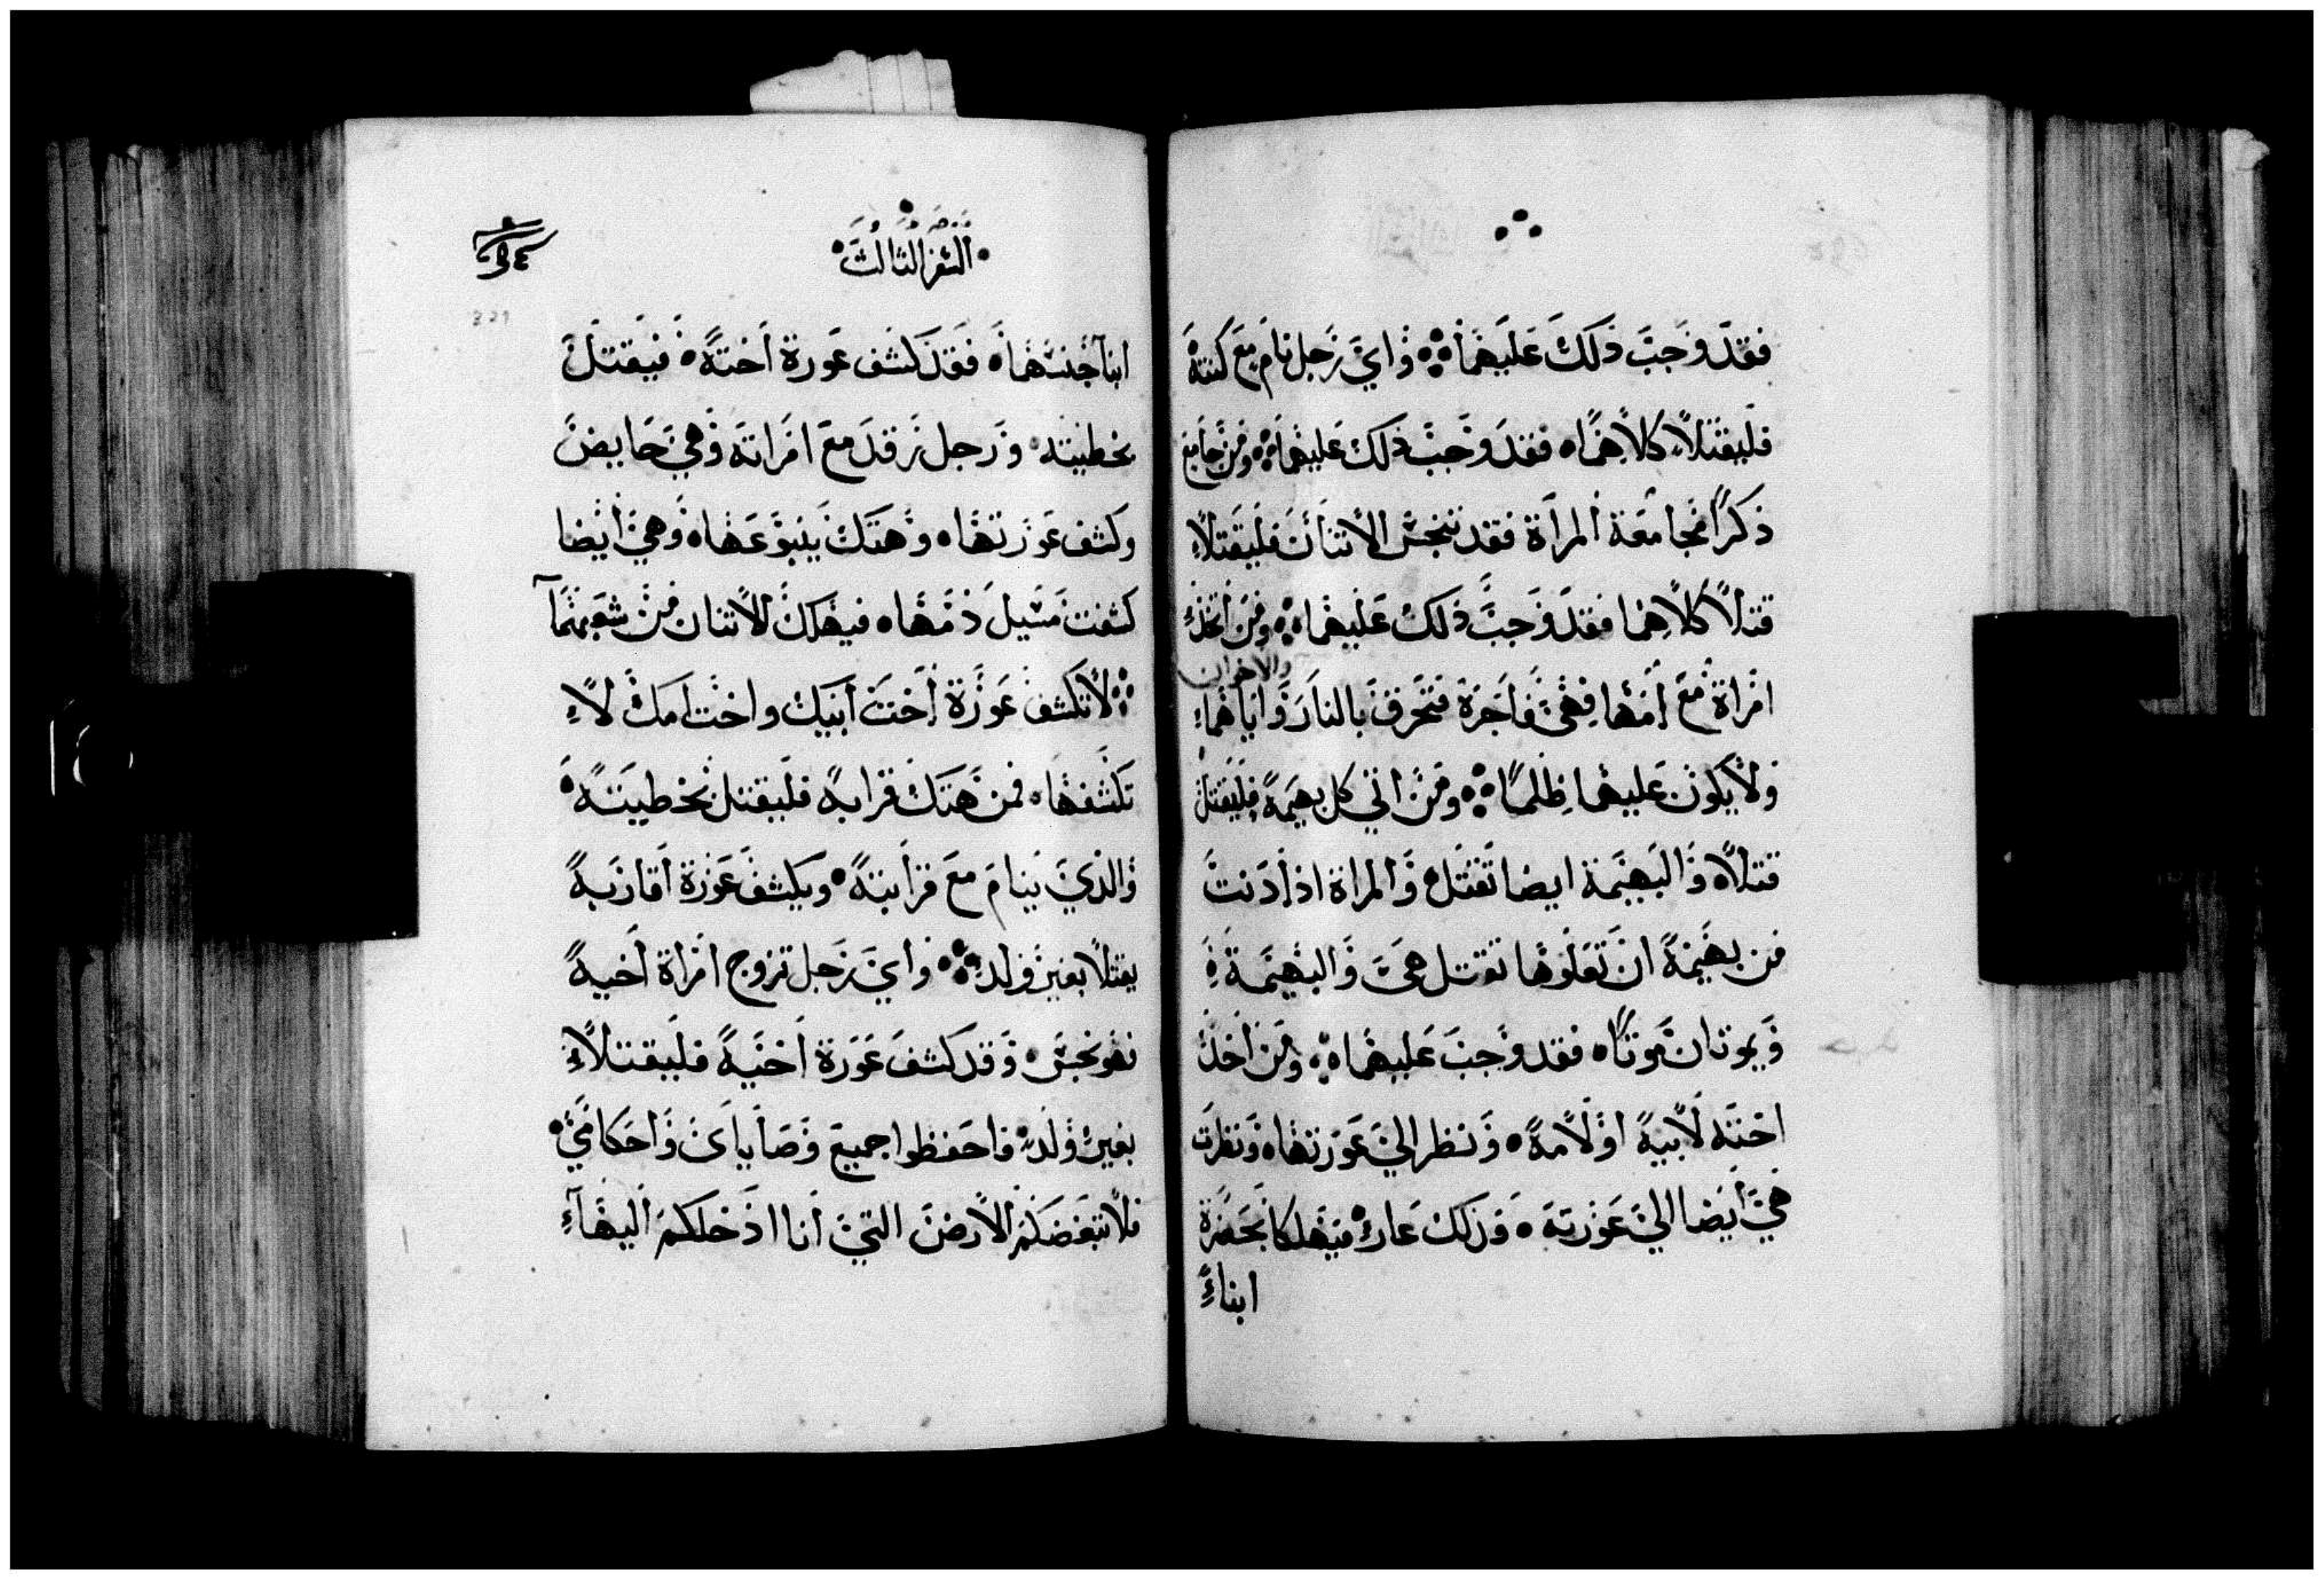 فقد وجب ذلك عليهما ۞ واي رجل نام مع كنته
فليقتلا كلاهما ۞ فقد وجب ذلك عليهما ۞ ومن جامع
ذكرا مجامعة المراة فقد نجس الاتنان فليقتلا
قتلا كلاهما فقد وجب ذلك عليهما ۞ ومن اتخذ
والاخران
امراة مع امها فهي فاجرة فتحرق بالنار واياهما
ولا يكون عليهما ظلما ۞ ومن اتي كل بهيمة فليقتل
قتلا ۞ والبهيمة ايضا تقتل والمراة اذا دنت
من بهيمة ان تعلوها تقتل هي والبهيمة
ويموتان موتا ۞ فقد وجب عليهما ۞ ومن اخذ
اخته لابيه او لامه ۞ ونظر الي عورتها ۞ ونظرت
هي ايضا الي عورته ۞ فذلك عار فيهلكا بحضرة
ابناء
السفر الثالث
ابنا جنسهما ۞ فقد كشف عورة اخته ۞ فيقتل
بخطيته ۞ ورجل رقد مع امراته وهي حايض
وكشف عورتها ۞ وهتك ينبوعها ۞ وهي ايضا
كشفت مسيل دمها ۞ فيهلك الاتنان من شعبهما
۞ لا تكشف عورة اخت ابيك واخت امك لا
تكشفها ۞ فمن هتك قرابه فليقتل بخطيته ۞
والذي ينام مع قرابته ۞ ويكشف عورة اقاربه
يقتلا بغير ولد ۞ واي رجل تزوج امراة اخيه
فهو نجس ۞ وقد كشف عورة اخيه فليقتلا
بغير ولد ۞ فاحفظوا جميع وصاياي واحكامي ۞
فلا تبغضكم الارض التي انا ادخلكم اليها